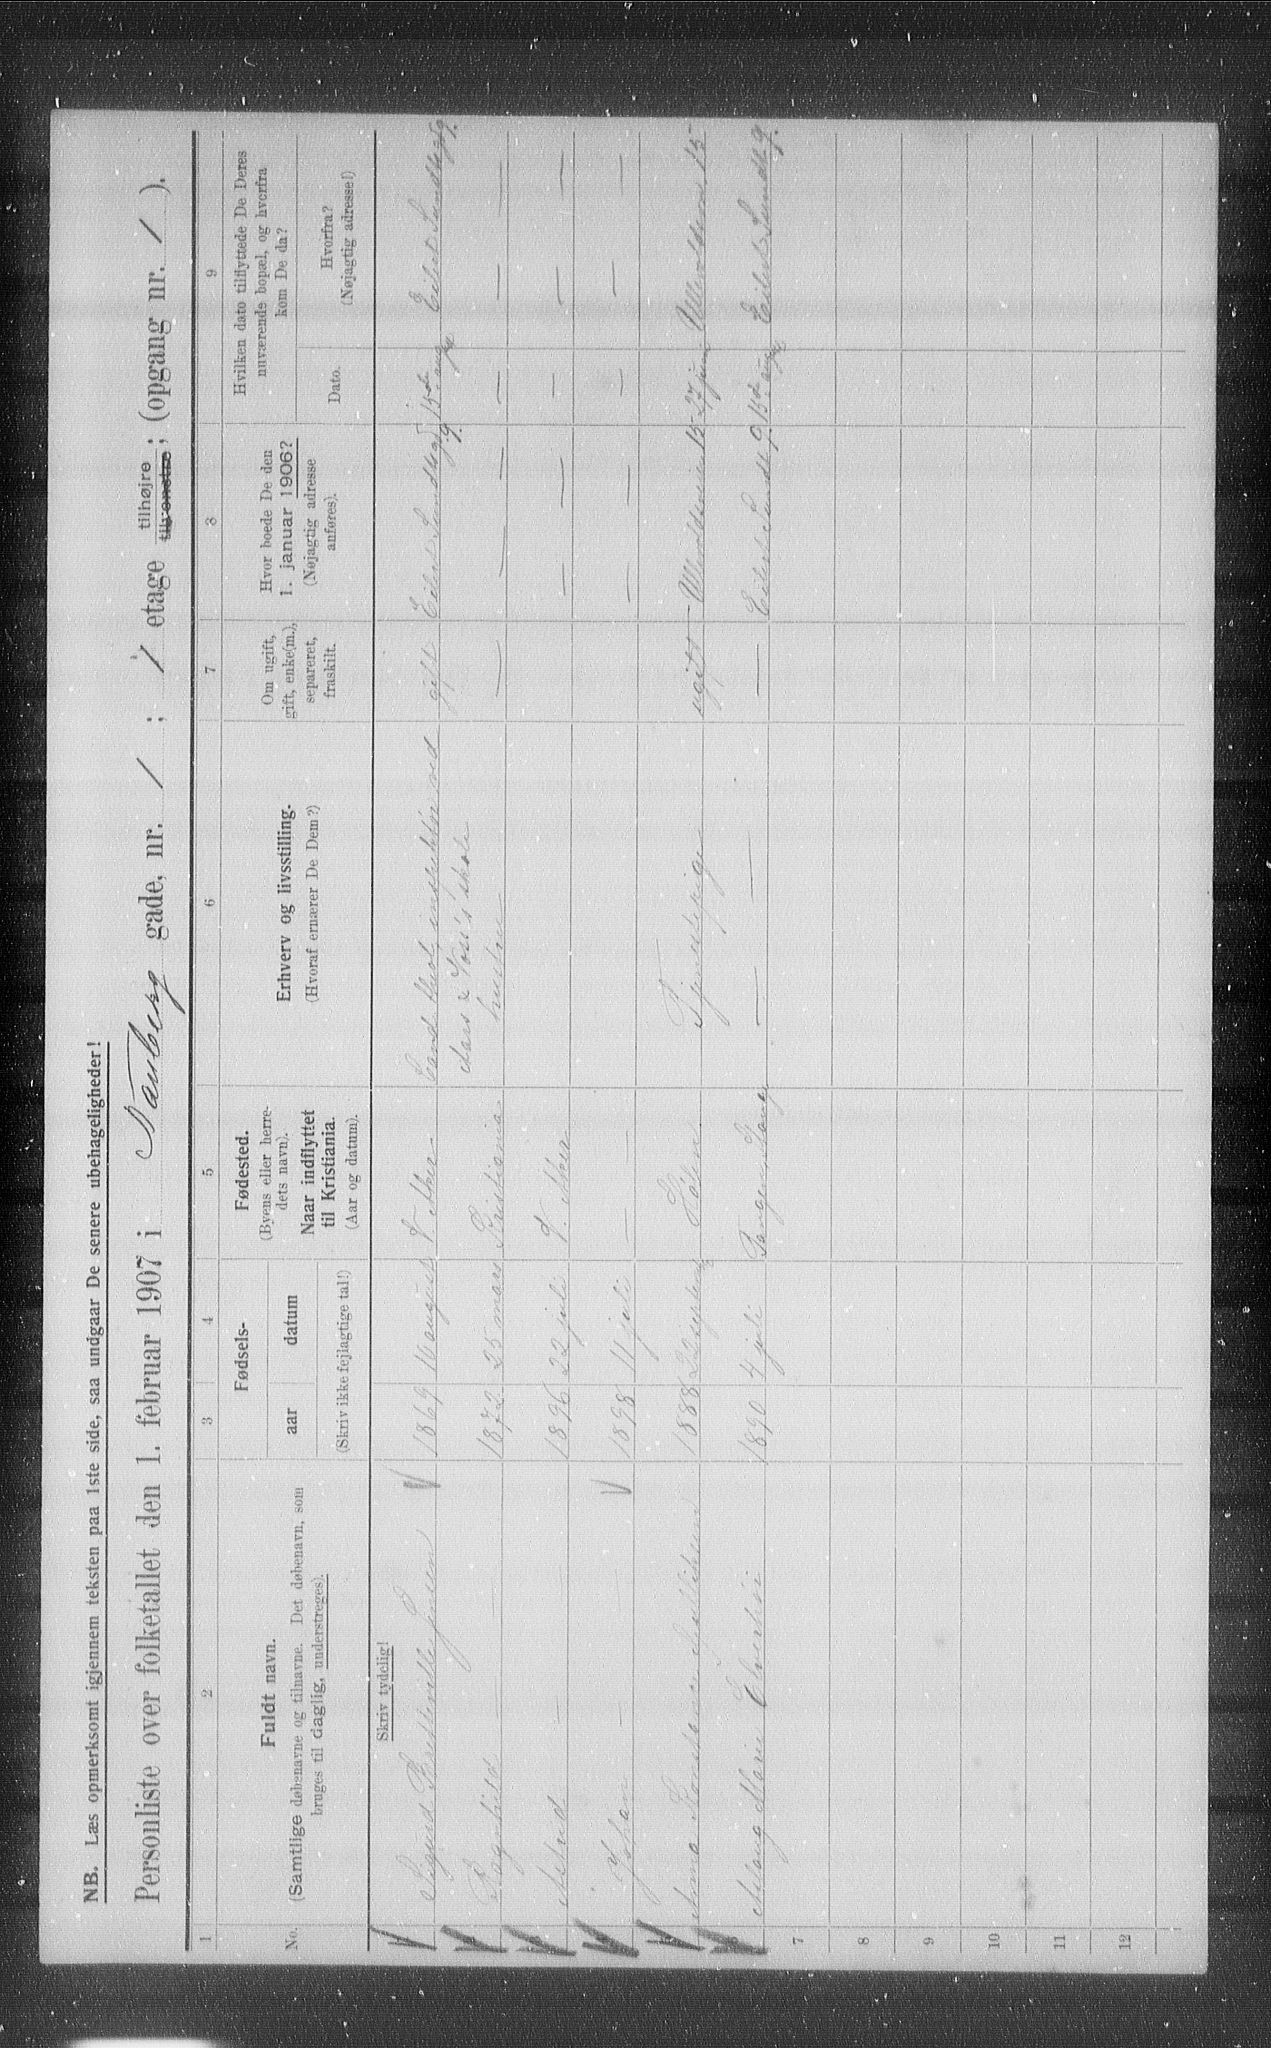 NB. Læs opmerksomt igjennem teksten paa 1ste side, saa undgaar De senere ubehageligheder!
Personliste over folketallet den 1. februar 1907 i Nauberg gade, nr. 1 ; 1 etage tilhøjre tilvenstre ; (opgang nr. 1 ).
1 2 3 4 5 6 7 8 9
No.
Fuldt navn.
(Samtlige døbenavne og tilnavne. Det døbenavn, som
bruges til daglig, understreges).
Fødsels-
aar datum
(Skriv ikke fejlagtige tal!)
Fødested.
(Byens eller herre-
dets navn).
Naar indflyttet
til Kristiania.
(Aar og datum).
Erhverv og livsstilling.
(Hvoraf ernærer De Dem?)
Om ugift,
gift, enke(m.),
separeret,
fraskilt.
Hvor boede De den
1. januar 1906?
(Nøjagtig adresse
anføres).
Hvilken dato tilflyttede De Deres
nuværende bopæl, og hvorfra
kom De da?
Dato.
Hvorfra?
(Nøjagtig adresse!)
Skriv tydelig!
Sigurd Jensen 1869 16 august V. Aker Cand. theol, ved gift Eilert Sundtsgd 9. 15de aug Eilert Sundtsgd 9.
Aars & Voss's skole
Ragnhild — 1872 25 mars Kristiania hustru — — — — — —
Astrid — — 1896 22 juli V. Aker — — — — —
Johan — — 1898 11 juli — — — — — — —
Anna 1888 Tjenestepige ugift Ullevoldsveien 15 27 juni Ullevoldsveien 15
Aslaug Marie 1890 4 juli — — — Eilert Sundt 9 15de aug Eilert Sundt 9.
7
8
9
10
11
12